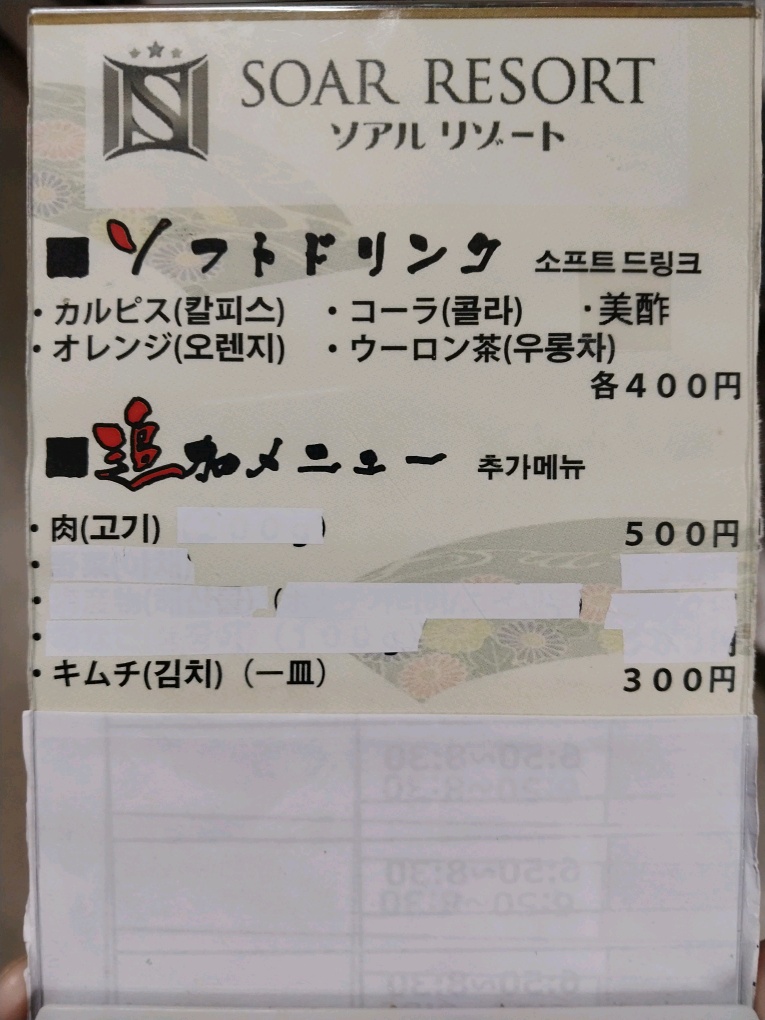 SOAR RESORT
ソアル リゾート
■ソフトドリンク 소프트 드링크
・カルピス(칼피스) ・コーラ(콜라) ・美酢
・オレンジ(오렌지) ・ウーロン茶(우롱차)
各４００円
■追加メニュー 추가메뉴
・肉(고기) ５００円
・キムチ(김치)（一皿） ３００円
6:50~8:30
6:20~8:30
6:50~8:30
6:20~8:30
6:50~8:30